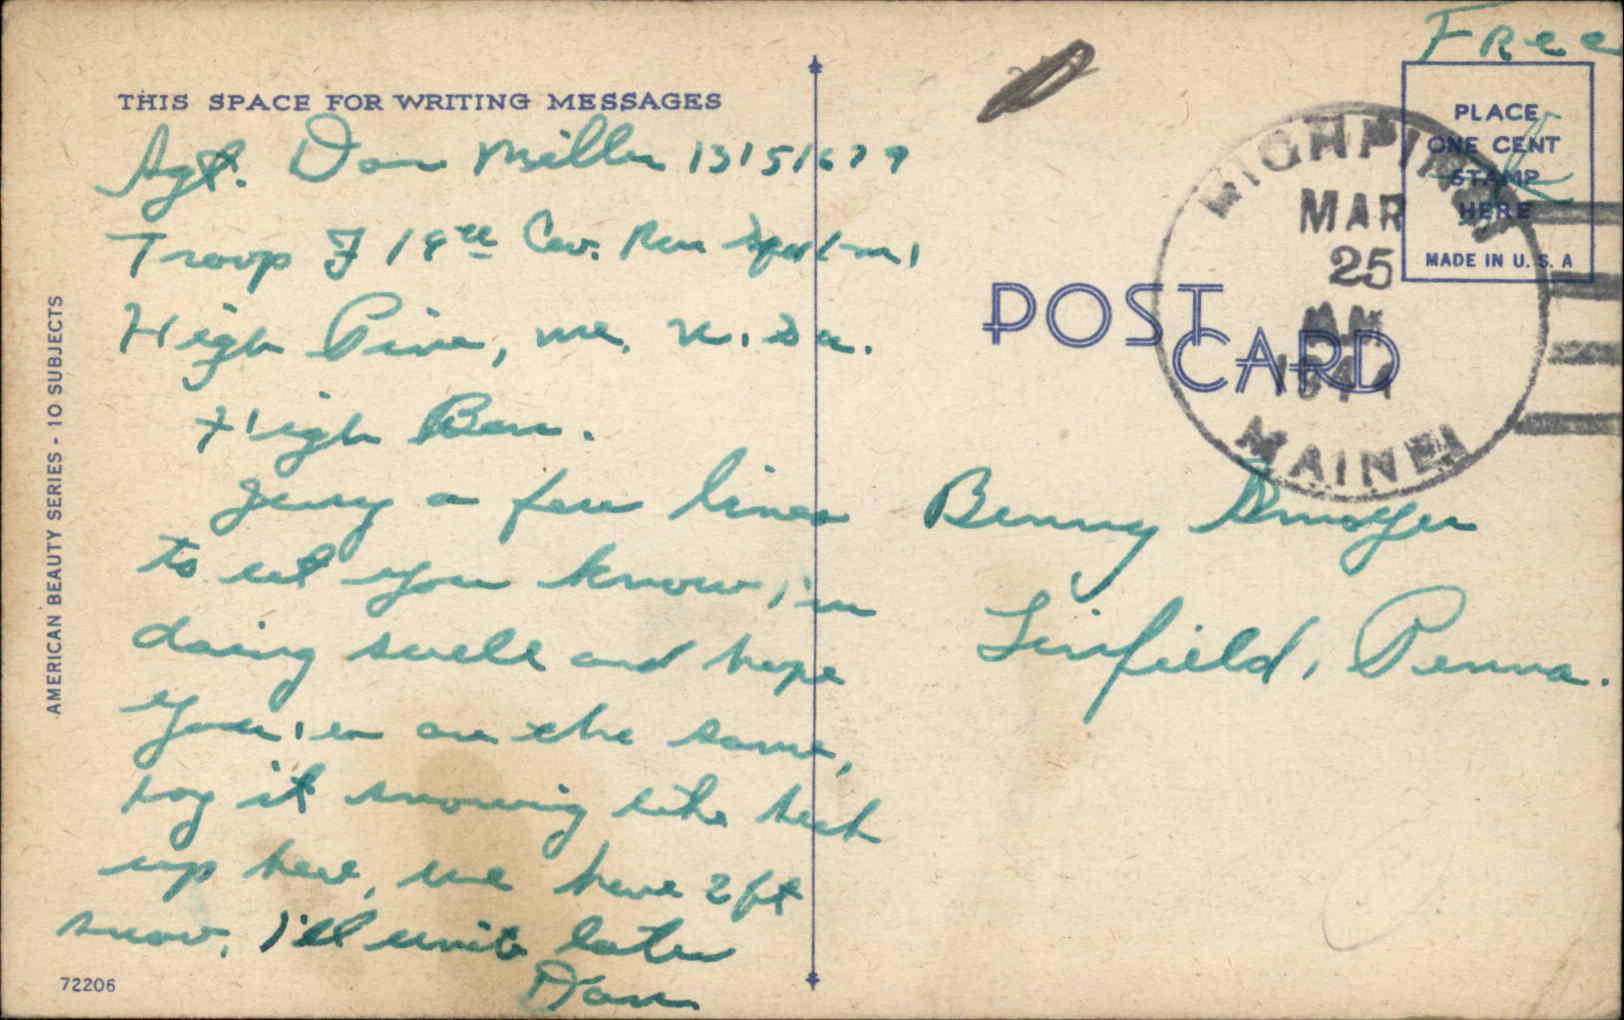 THIS SPACE FOR WRITING MESSAGES
Sgt. Don Miller 13151679
Troop F 18th Cav. Rcn
High Pine, Me.
High Ben.
Jerry a few lines
to let you know, i'm
doing swell and hope
you, er are the same,
boy it snowing like heck
up here, we have 2 ft
snow, I'll write later
Don
72206
AMERICAN BEAUTY SERIES - 10 SUBJECTS
Free
PLACE
ONE CENT
STAMP
HERE
MADE IN U.S.A
HIGHPINE
MAR
25
AM
MAINE
POST
CARD
Benny Smoyer
Linfield, Penna.